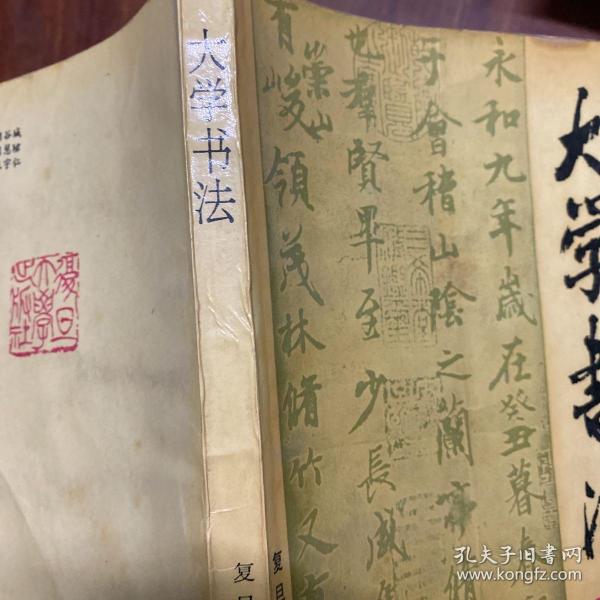 大學書法
永和九年歲在癸丑暮春
于會稽山陰之蘭亭脩
也羣賢畢至少長咸
有崇山峻領茂林脩竹又
复旦
大学书法
复旦
復旦
大學
出版社
孔夫子旧书网
www.kongfz.com